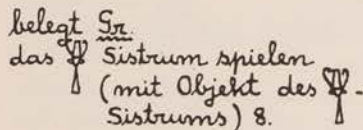 belegt Gr
das 𓏣 Sistrum spielen
(mit Objekt des 𓏣-
Sistrums) 8.